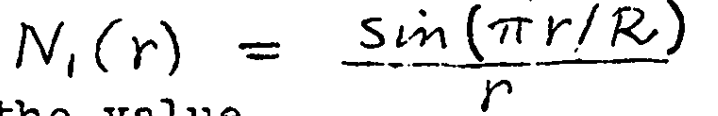 N₁(r) = sin(πr/R)/r
the value